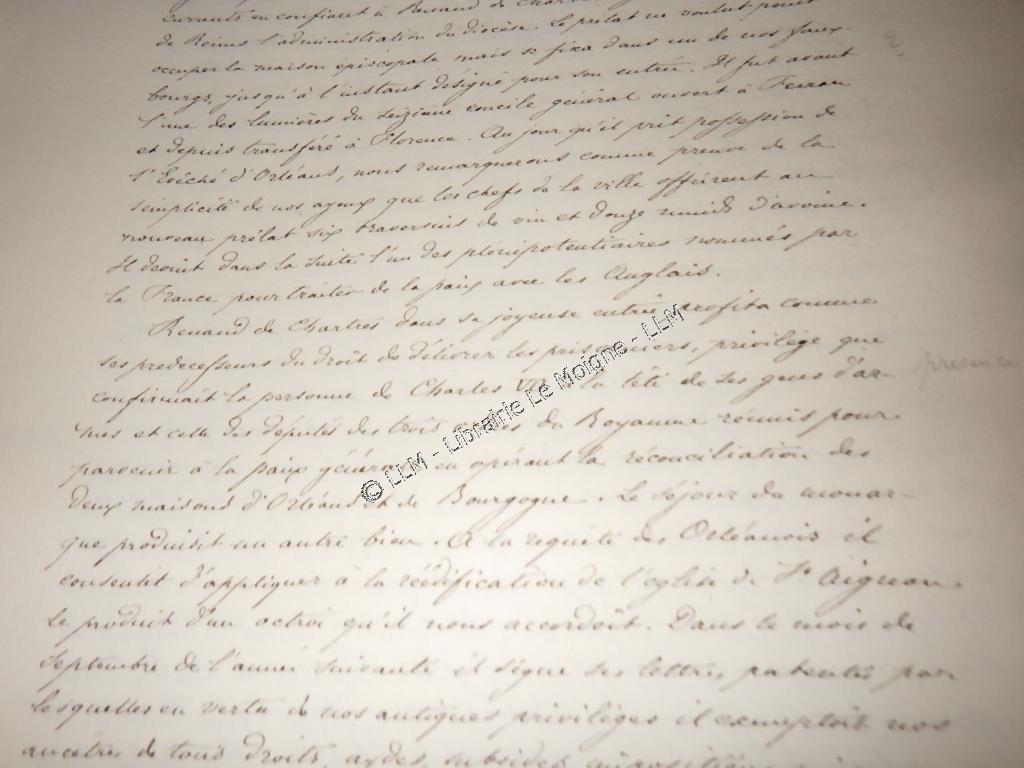 currents en confiant à Renaud de
de Reims l'administration du diocèse. Le prélat ne voulut point
occuper la maison épiscopale mais se fixa dans un de nos faux-
bourgs, jusqu'à l'instant désigné pour son entrée. Il fut avant
l'une des lumières du seizième concile général ouvert à Ferrare
et depuis transféré à Florence. Au jour qu'il prit possession de
l'Evêché d'Orléans, nous remarquerons comme preuve de la
simplicité de nos ayeux que les chefs de la ville offrirent au
nouveau prélat six traversins de vin et douze muids d'avoine.
Il devint dans la suite l'un des plénipotentiaires nommés par
la France pour traiter de la paix avec les Anglais.
Renaud de Chartres dans sa joyeuse entrée profita comme
ses predecesseurs du droit de délivrer les prisonniers, privilège que
confirmait la personne de Charles VII à la tête de ses gens d'ar-
presence
mes et celle des députés des trois ordres du Royaume réunis pour
parvenir à la paix générale en opérant la réconciliation des
deux maisons d'Orléans et de Bourgogne. Le séjour du monar-
que produisit un autre bien. A la requête des Orléanois il
consentit d'appliquer à la réédification de l'eglise de St Aignan
le produit d'un octroi qu'il nous accordoit. Dans le mois de
Septembre de l'année suivante il signe ses lettres patentes par
lesquelles en vertu de nos antiques privilèges il exemptoit nos
ancêtres de tous droits, aydes, subsides, impositions
© LLM - Librairie Le Moigne - LLM